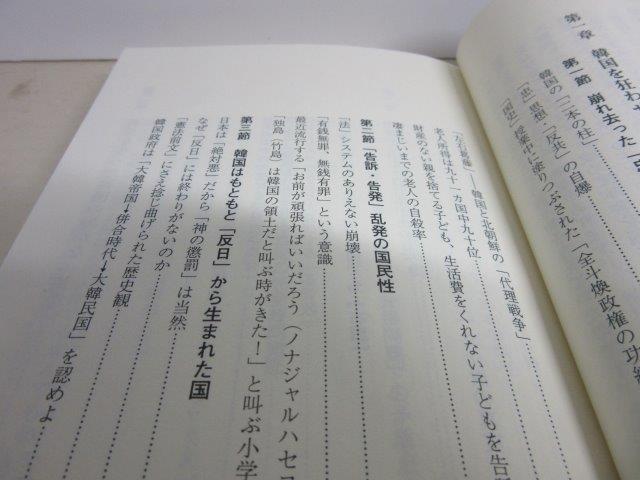 第一章 韓国を狂わ
第一節 崩れ去った「忠
韓国の「二本の柱」
「忠」思想・「反共」の自爆
「国史」授業中に塗りつぶされた「全斗煥政権の功
韓国と北朝鮮の「代理戦争」
老人所得は九十一カ国中九十位
財産のない親を捨てる子ども、生活費をくれない子どもを告
凄まじいまでの老人の自殺率
第二節 「告訴・告発」乱発の国民性
「法」システムのありえない崩壊
「有銭無罪、無銭有罪」という意識
最近流行する「お前が頑張ればいいだろう(ノナジャルハセ
「独島(竹島)は韓国の領土だと叫ぶ時がきた!」と叫ぶ小学
第三節 韓国はもともと「反日」から生まれた国
日本は「絶対悪」だから「神の懲罰」は当然
なぜ「反日」には終わりがないのか
「憲法前文」にさえ捻じ曲げられた歴史観
韓国政府は「大韓帝国→併合時代→大韓民国」を認めよ